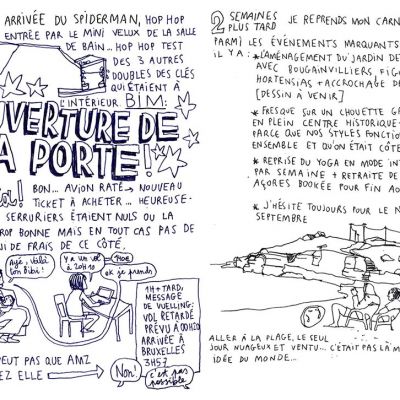 ARRIVÉE DU SPIDERMAN, HOP HOP
ENTRÉE PAR LE MINI VELUX DE LA SALLE
DE BAIN... HOP HOP TEST
DES 3 AUTRES
DOUBLES DES CLÉS
QUI ÉTAIENT À
L'INTÉRIEUR. BIM:
OUVERTURE DE
LA PORTE!
BON... AVION RATÉ → NOUVEAU
TICKET À ACHETER... HEUREUSE-
SERRURIERS ÉTAIENT NULS OU LA
TROP BONNE MAIS EN TOUT CAS PAS DE
DE FRAIS DE CE CÔTÉ.
Ayé, Voilà
ton Bibi!
Y a un vol
à 20H10
ok je prends
1H + TARD,
MESSAGE
DE VUELING:
VOL RETARDÉ
PRÉVU À 00H20
ARRIVÉE À
BRUXELLES
3H57
PEUT PAS QUE AMZ
EZ ELLE →
Non!
c'est pas
possible
2 SEMAINES
PLUS TARD
JE REPRENDS MON CARN
PARMI LES ÉVÉNEMENTS MARQUANTS
IL Y A:
* L'AMÉNAGEMENT DU JARDIN DE
AVEC BOUGAINVILLIERS FIGU
HORTENSIAS + ACCROCHAGE DE
[DESSIN À VENIR]
* FRESQUE SUR UN CHOUETTE GA
EN PLEIN CENTRE HISTORIQUE
PARCE QUE NOS STYLES FONCTION
ENSEMBLE ET QU'ON ÉTAIT CÔTE
* REPRISE DU YOGA EN MODE INT
PAR SEMAINE + RETRAITE DE
AÇORES BOOKÉE POUR FIN AO
* J'HÉSITE TOUJOURS POUR LE N
SEPTEMBRE
ALLER À LA PLAGE, LE SEUL
JOUR NUAGEUX ET VENTU... C'ÉTAIT PAS LA M
IDÉE DU MONDE...